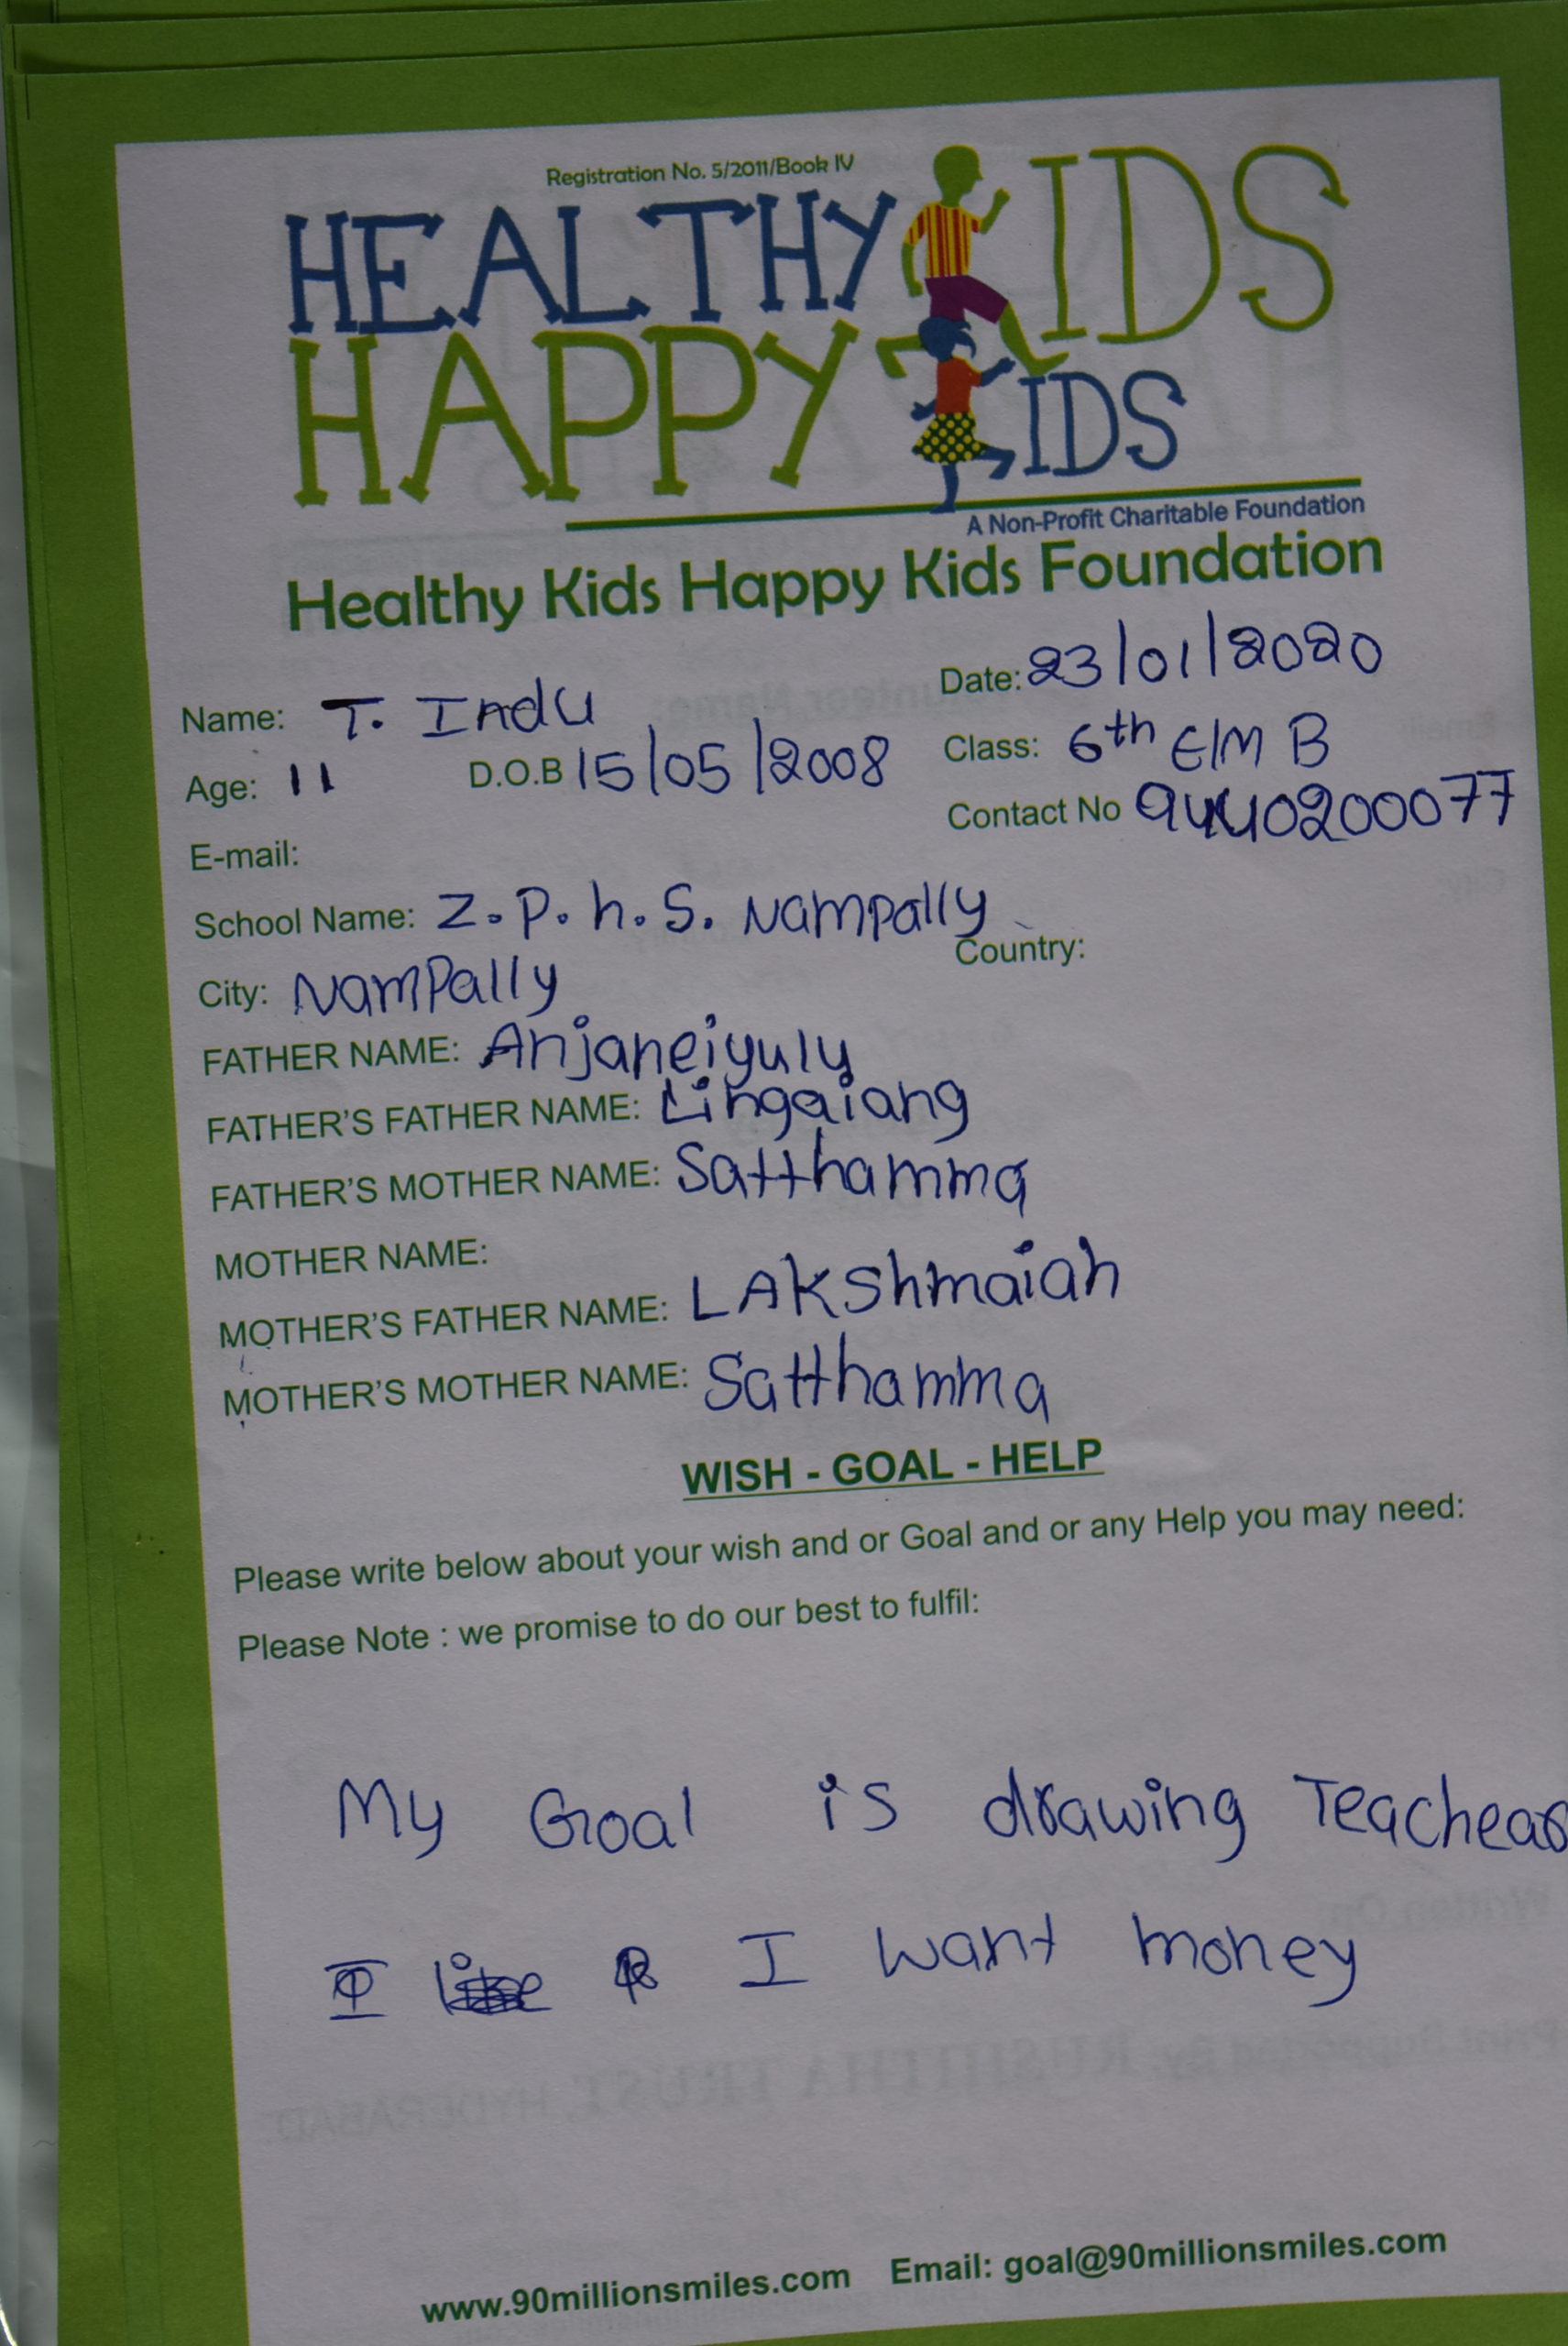 Registration No. 5/2011/Book IV
HEALTHY KIDS
HAPPY KIDS
A Non-Profit Charitable Foundation
Healthy Kids Happy Kids Foundation
Date: 23/01/2020
Name: T. Indu
Age: 11 D.O.B 15/05/2008 Class: 6th E/M B
Contact No 9440200077
E-mail:
School Name: Z.P.h.S. Nampally
City: NamPally Country:
FATHER NAME: Anjaneiyulu
FATHER'S FATHER NAME: Lingaiang
FATHER'S MOTHER NAME: Satthamma
MOTHER NAME:
MOTHER'S FATHER NAME: LAKShmaiah
MOTHER'S MOTHER NAME: Satthamma
WISH - GOAL - HELP
Please write below about your wish and or Goal and or any Help you may need:
Please Note : we promise to do our best to fulfil:
My Goal is drawing Teachear
I want money
www.90millionsmiles.com Email: goal@90millionsmiles.com